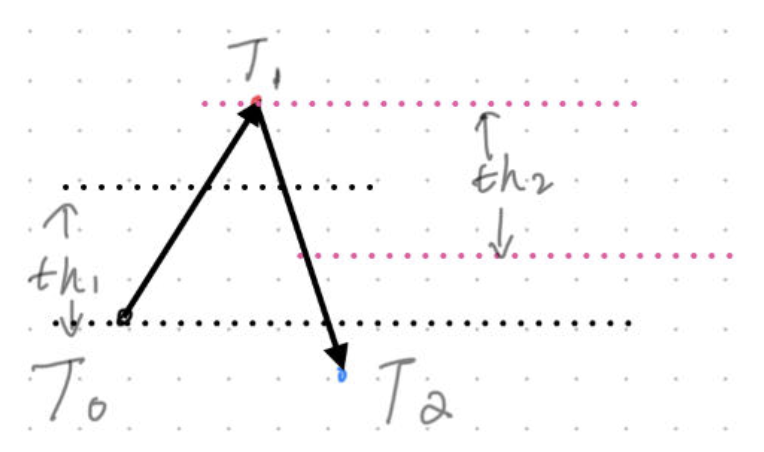 T₁
th₂
th₁
T₀
T₂